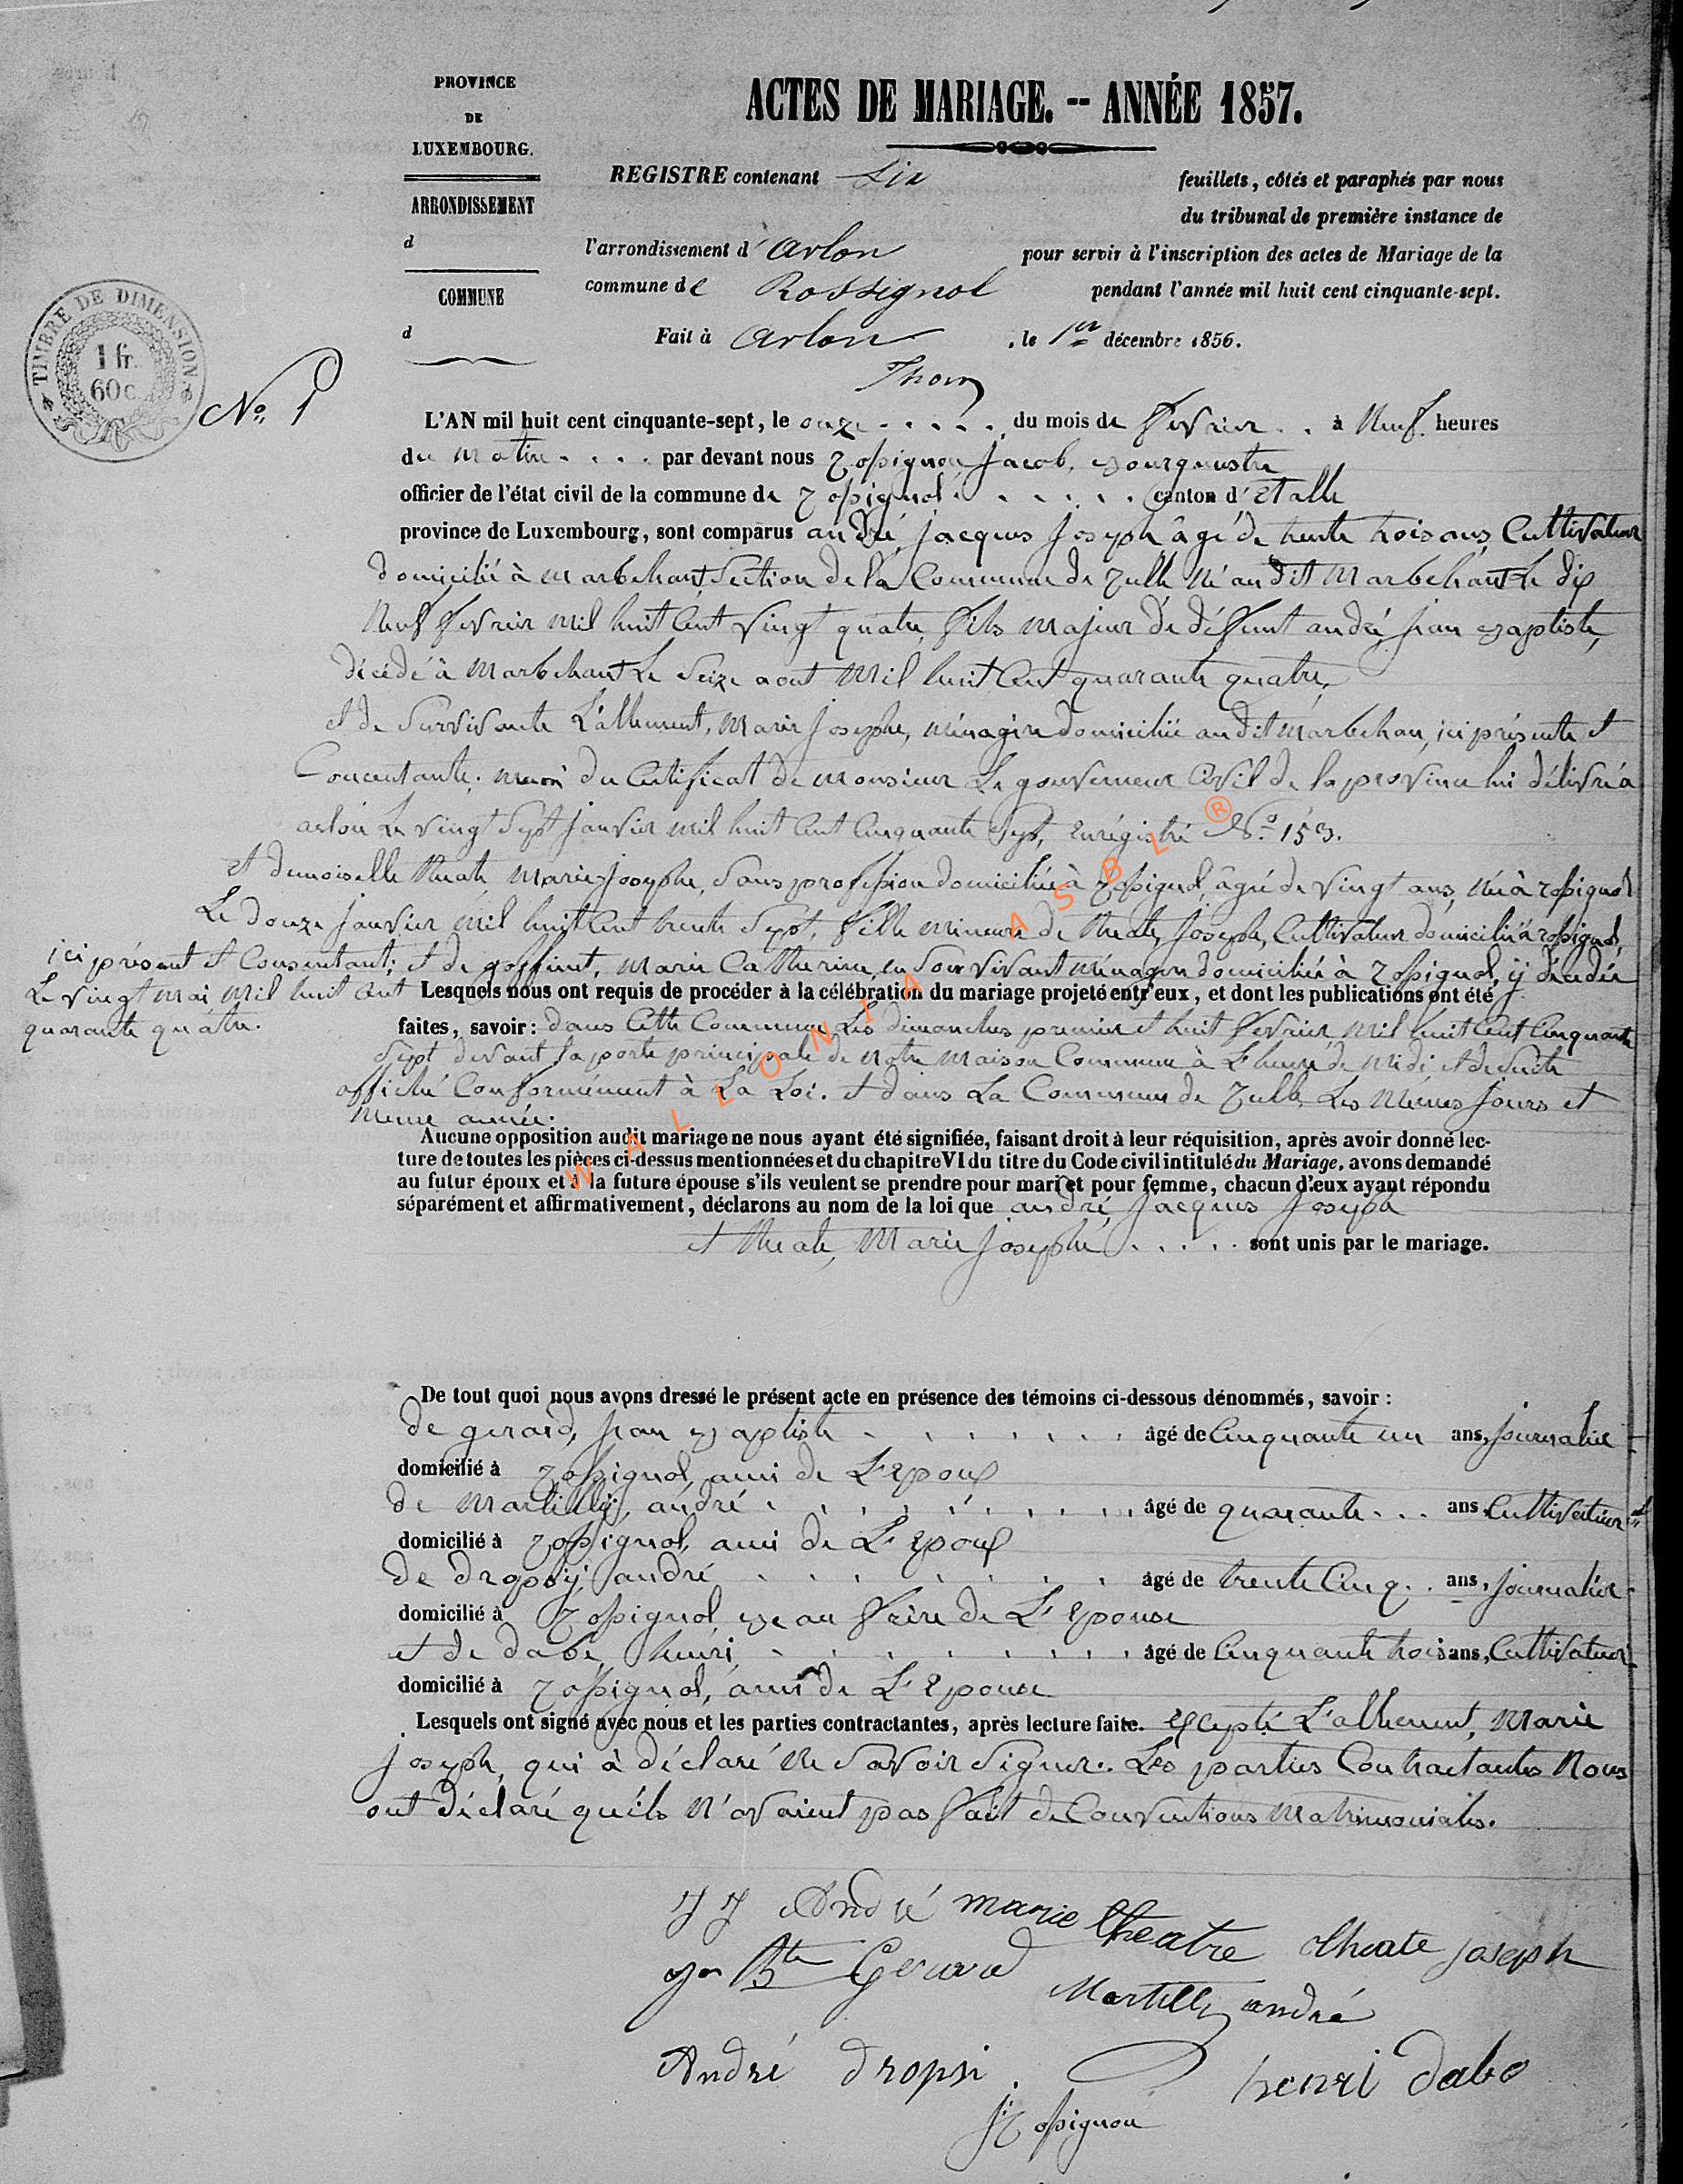 PROVINCE
DE
LUXEMBOURG.
ARRONDISSEMENT
d
COMMUNE
d
ACTES DE MARIAGE. -- ANNÉE 1857.
REGISTRE contenant Six feuillets, côtés et paraphés par nous
du tribunal de première instance de
l'arrondissement d'Arlon pour servir à l'inscription des actes de Mariage de la
commune de Rossignol pendant l'année mil huit cent cinquante-sept.
Fait à Arlon, le 1er décembre 1856.
TIMBRE DE DIMENSION
1 fr.
60 c.
No. 1
L'AN mil huit cent cinquante-sept, le onze du mois de fevrier à Neuf heures
du Matin par devant nous rossignon Jacob, Bourgmestre
officier de l'état civil de la commune de rossignol canton d'Etalle
province de Luxembourg, sont comparus andré, Jacques Joseph âgé de trente trois ans, Cultivateur
domicilié à Marbehant, Section de la Commune de rulle né au dit Marbehant le dix
Neuf fevrier mil huit Cent vingt quatre, fils majeur de deffunt andré, jean Baptiste,
décédé à Marbehant Le Seize aout Mil huit Cent quarante quatre,
et de Survivante L'allement, Marie Josephe, ménagère domiciliée au dit Marbehan, ici présente et
Concentante. muni du Certificat de Monsieur Le gouverneur Civil de la province lui délivré a
arlon Le vingt Sept Janvier mil huit Cent Cinquante Sept, enrégistré No. 153.
et demoiselle theate, Marie Josephe, Sans profession domiciliée à rossignol, âgée de vingt ans, née à rossignol
Le douze Janvier mil huit Cent trente Sept, fille mineure de theate, Joseph, Cultivateur domicilié à rossignol,
ici présent et Consentant; et de goffinet, Marie Catherine, en Son vivant ménagère domiciliée à rossignol, ÿ décédée
Le vingt mai mil huit Cent
quarante quatre.
Lesquels nous ont requis de procéder à la célébration du mariage projeté entr'eux, et dont les publications ont été
faites, savoir: dans Cette Commune Les dimanches premier et huit fevrier mil huit Cent Cinquante
Sept devant la porte principale de Notre maison Commune à L'heure de Midi et de suite
affiché Conformément à La Loi. et dans La Commune de rulle Les Mêmes Jours et
Même année.
Aucune opposition audit mariage ne nous ayant été signifiée, faisant droit à leur réquisition, après avoir donné lec-
ture de toutes les pièces ci-dessus mentionnées et du chapitre VI du titre du Code civil intitulé du Mariage, avons demandé
au futur époux et à la future épouse s'ils veulent se prendre pour mari et pour femme, chacun d'eux ayant répondu
séparément et affirmativement, déclarons au nom de la loi que andré Jacques Joseph
et theate, Marie Josephe sont unis par le mariage.
De tout quoi nous avons dressé le présent acte en présence des témoins ci-dessous dénommés, savoir:
de gerard, jean Baptiste âgé de Cinquante un ans, journalier
domicilié à rossignol, ami de L'Epoux
de Martilly, andré âgé de quarante ans Cultivateur
domicilié à rossignol, ami de L'Epoux
de dropsÿ, andré âgé de trente Cinq ans, journalier
domicilié à rossignol Beau frère de L'Epouse
et de dabe, henri, âgé de Cinquante trois ans, Cultivateur
domicilié à rossignol, ami de L'Epouse
Lesquels ont signé avec nous et les parties contractantes, après lecture faite. excepté L'allement, Marie
Joseph, qui à déclaré ne Savoir Signer. Les parties Contractantes Nous
ont déclaré qu'ils N'avaient pas fait de Conventions Matrimoniales.
JJ André marie theatre theate joseph
Jn Bte Gerard Martilly andré
André dropsi henri dabe
J rossignon
WALLONIA ASBL ®